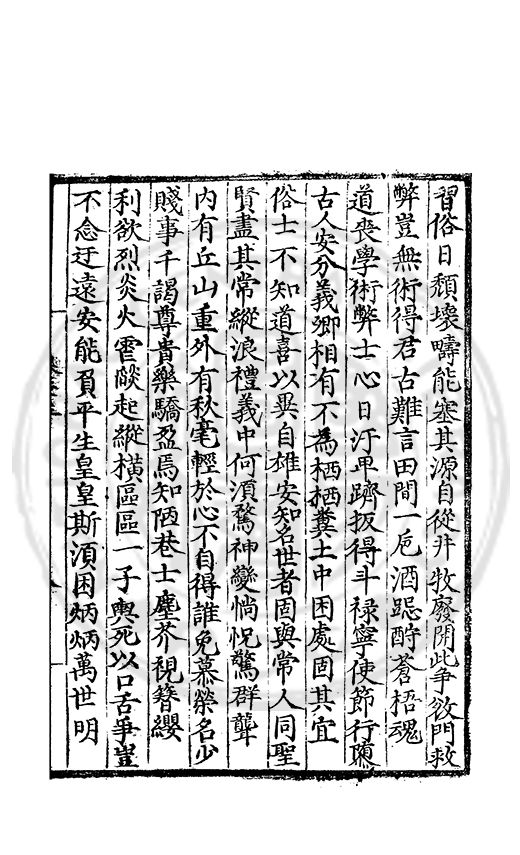 習俗日頽壊疇能塞其源自從井牧廢開此爭敓門救
弊豈無術得君古難言田間一巵酒跽酹蒼梧魂
道喪學術弊士心日汙卑躋扳得斗禄寧使節行隳
古人安分義卿相有不為栖栖糞土中困處固其宜
俗士不知道喜以異自雄安知名世者固與常人同聖
賢盡其常縱浪禮義中何湏驚神變惝怳驚群聾
内有丘山重外有秋毫輕於心不自得誰免慕榮名少
賤事千謁尊貴藥驕盈焉知陋巷士塵芥視簪纓
利欲烈炎火雹燄起縱橫區區一子輿死以口舌爭豈
不念迂遠安能負平生皇皇斯湏困炳炳萬世明